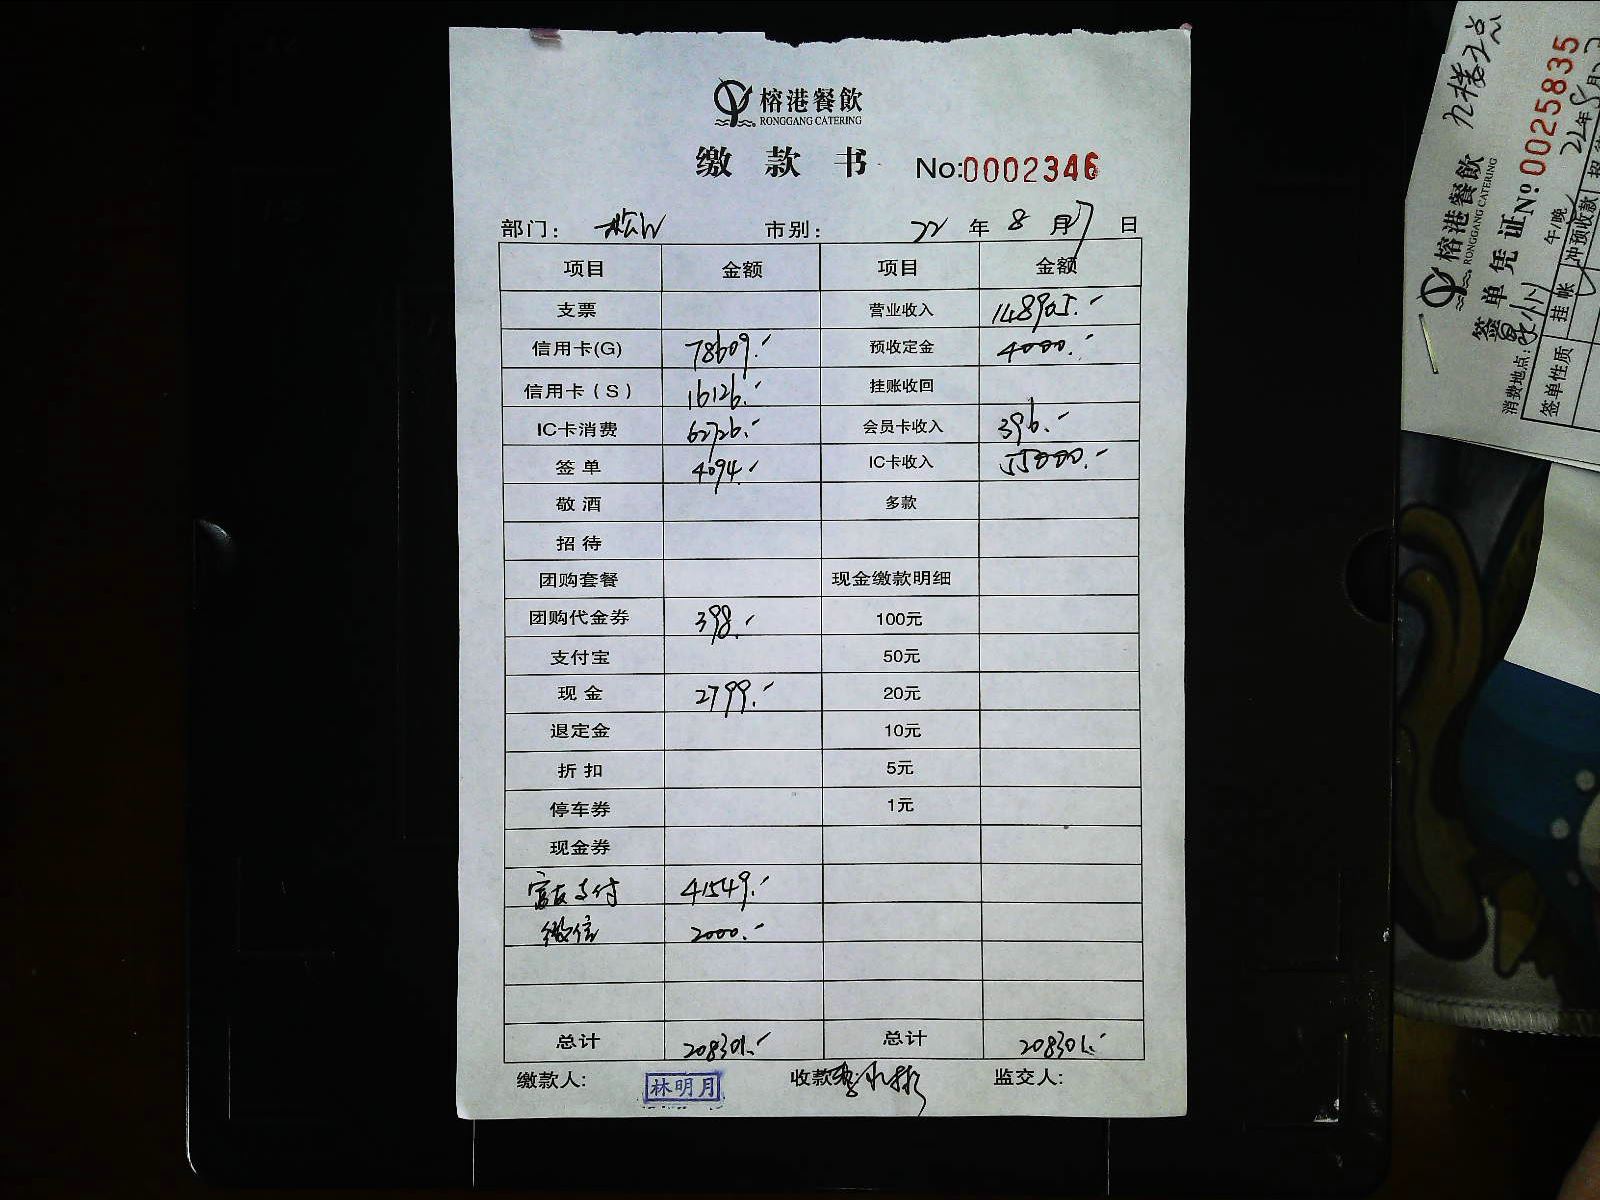 榕港餐飲
RONGGANG CATERING
缴款书 No:0002346
部门: 市别: 22年8月7日
项目 金额 项目 金额
支票 营业收入 148905.-
信用卡(G) 78609.- 预收定金 4000.-
信用卡(S) 16126.- 挂账收回
IC卡消费 62726.- 会员卡收入 396.-
签单 4094.- IC卡收入 55000.-
敬酒 多款
招待
团购套餐 现金缴款明细
团购代金券 398.- 100元
支付宝 50元
现金 2799.- 20元
退定金 10元
折扣 5元
停车券 1元
现金券
富友支付 41549.-
微信 2000.-
总计 208301.- 总计 208301.-
缴款人: 林明月 收款 监交人:
榕港餐飲 九楼
RONGGANG CATERING
签单凭证 No 0025835
消费地点: 午/晚 22年8月
签单性质 挂帐 冲预收款